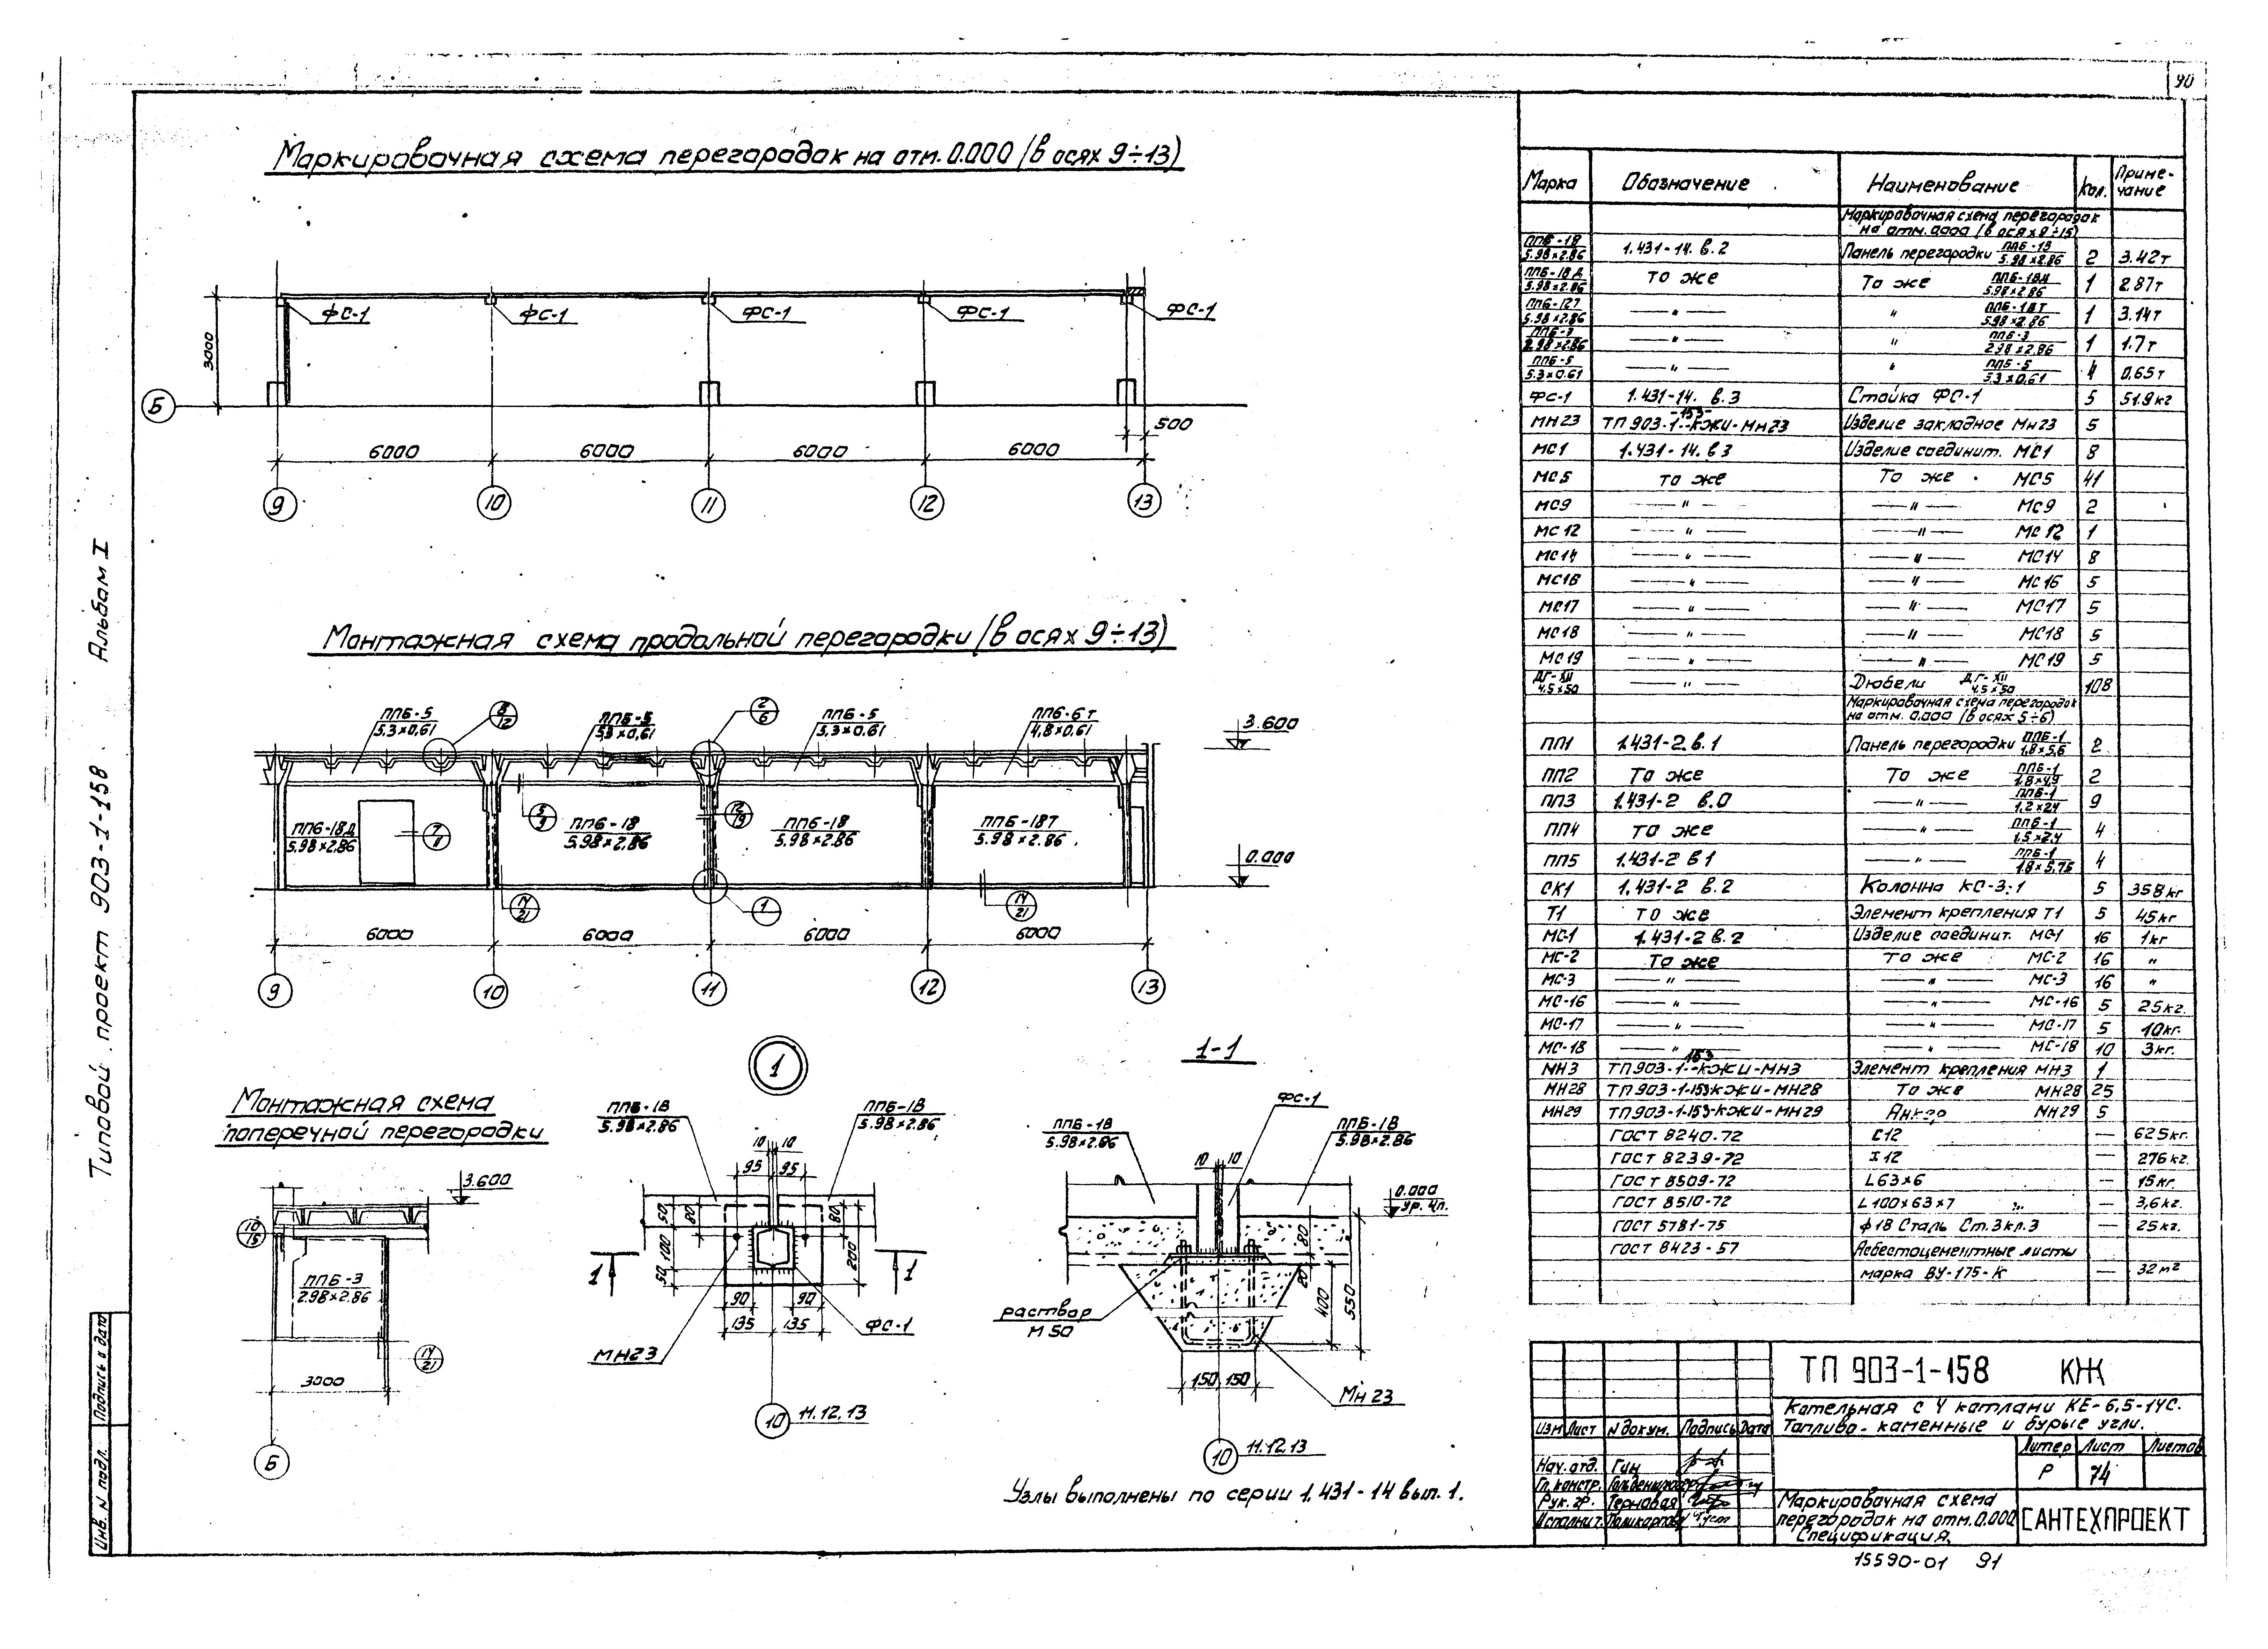 90
Маркировочная схема перегородок на отм. 0.000 (в осях 9÷13)
ФС-1 ФС-1 ФС-1 ФС-1 ФС-1
3000
Б
500
6000 6000 6000 6000
9 10 11 12 13
Монтажная схема продольной перегородки (в осях 9÷13)
ППБ-5 8 ППБ-5 2 ППБ-5 ППБ-6т
5,3×0,61 12 5,3×0,61 6 5,3×0,61 4,8×0,61
3.600
ППБ-18д 7 5 ППБ-18 12 ППБ-18 ППБ-18Т
5.98×2.86 9 5.98×2.86 19 5.98×2.86 5.98×2.86
0.000
14 1 14
21 21
6000 6000 6000 6000
9 10 11 12 13
Монтажная схема
поперечной перегородки
3.600
10
15
ППБ-3
2.98×2.86
14
21
3000
Б
1
ППБ-18 ППБ-18
5.98×2.86 5.98×2.86
10 10
95 95
50 80 80
100 200
50
1 1
90 90
135 135
ФС-1
МН23
10 11.12.13
1-1
ФС-1
ППБ-18 ППБ-18
5.98×2.86 5.98×2.86
10 10
0.000
ур. чп.
80
20
400
550
раствор
М 50
150 150
Мн 23
10 11.12.13
Узлы выполнены по серии 1.431-14 вып. 1.
Марка Обозначение Наименование Кол. Приме-
чание
Маркировочная схема перегородок
на отм. 0.000 (в осях 9÷13)
ППБ-18
5.98×2.86 1.431-14. в.2 Панель перегородки ППБ-18
5.98×2.86 2 3.42т
ППБ-18д
5.98×2.86 То же То же ППБ-18д
5.98×2.86 1 2.87т
ППБ-12т
5.98×2.86 — " — " ППБ-18т
5.98×2.86 1 3.14т
ППБ-3
2.98×2.86 — " — " ППБ-3
2.98×2.86 1 1.7т
ППБ-5
5.3×0.61 — " — " ППБ-5
5.3×0,61 4 0,65т
ФС-1 1.431-14. в.3 Стойка ФС-1 5 51.9кг
МН23 ТП 903-1-153-КЖИ-МН23 Изделие закладное Мн23 5
МС1 1.431-14. в3 Изделие соединит. МС1 8
МС5 то же То же МС5 41
МС9 — " — — " — МС9 2
МС12 — " — — " — МС12 1
МС14 — " — — " — МС14 8
МС16 — " — — " — МС16 5
МС17 — " — — " — МС17 5
МС18 — " — — " — МС18 5
МС19 — " — — " — МС19 5
ДГ-XII
4.5×50 — " — Дюбели ДГ-XII
4.5×50 108
Маркировочная схема перегородок
на отм. 0.000 (в осях 5÷6)
ПП1 1.431-2. в.1 Панель перегородки ППБ-1
1,8×5,6 2
ПП2 То же То же ППБ-1
1.8×4,9 2
ПП3 1.431-2 в.0 — " — ППБ-1
1.2×2.4 9
ПП4 То же — " — ППБ-1
1.5×2.4 4
ПП5 1.431-2 в1 — " — ППБ-1
1.8×5,75 4
СК1 1.431-2 в.2 Колонна КС-3-1 5 358кг
Т1 То же Элемент крепления Т1 5 45кг
МС-1 1.431-2 в.2 Изделие соединит. МС-1 16 1кг
МС-2 То же То же МС-2 16 "
МС-3 — " — — " — МС-3 16 "
МС-16 — " — — " — МС-16 5 25кг.
МС-17 — " — — " — МС-17 5 10кг.
МС-18 — " — — " — МС-18 10 3кг.
МН3 ТП 903-1-153-КЖИ-МН3 Элемент крепления МН3 1
МН28 ТП 903-1-153КЖИ-МН28 То же МН28 25
МН29 ТП 903-1-153-КЖИ-МН29 Анкер МН29 5
ГОСТ 8240-72 [12 — 625кг.
ГОСТ 8239-72 I 12 — 276кг.
ГОСТ 8509-72 L 63×6 — 15кг.
ГОСТ 8510-72 L 100×63×7 — 3,6кг.
ГОСТ 5781-75 ф18 Сталь Ст.3 кл.3 — 25кг.
ГОСТ 8423-57 Асбестоцементные листы
марка ВУ-175-К — 32м²
ТП 903-1-158 КЖ
Котельная с 4 котлами КЕ-6,5-14С.
Топливо - каменные и бурые угли.
Изм Лист N докум. Подпись Дата
Литер Лист Листов
Р 74
Нач. отд. Гин
Гл. констр.
Рук. гр. Терновая
Исполнит. Поликарпова
Маркировочная схема
перегородок на отм. 0.000
Спецификация.
САНТЕХПРОЕКТ
15590-01 91
Типовой проект 903-1-158 Альбом I
Инв. N подл. Подпись и дата